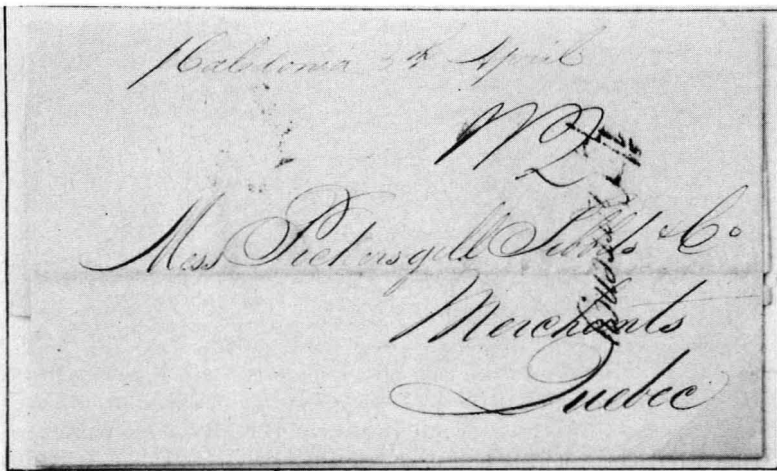 Caledonia 5th April
Mess Pickersgill Tibbits & Co
Merchants
Quebec